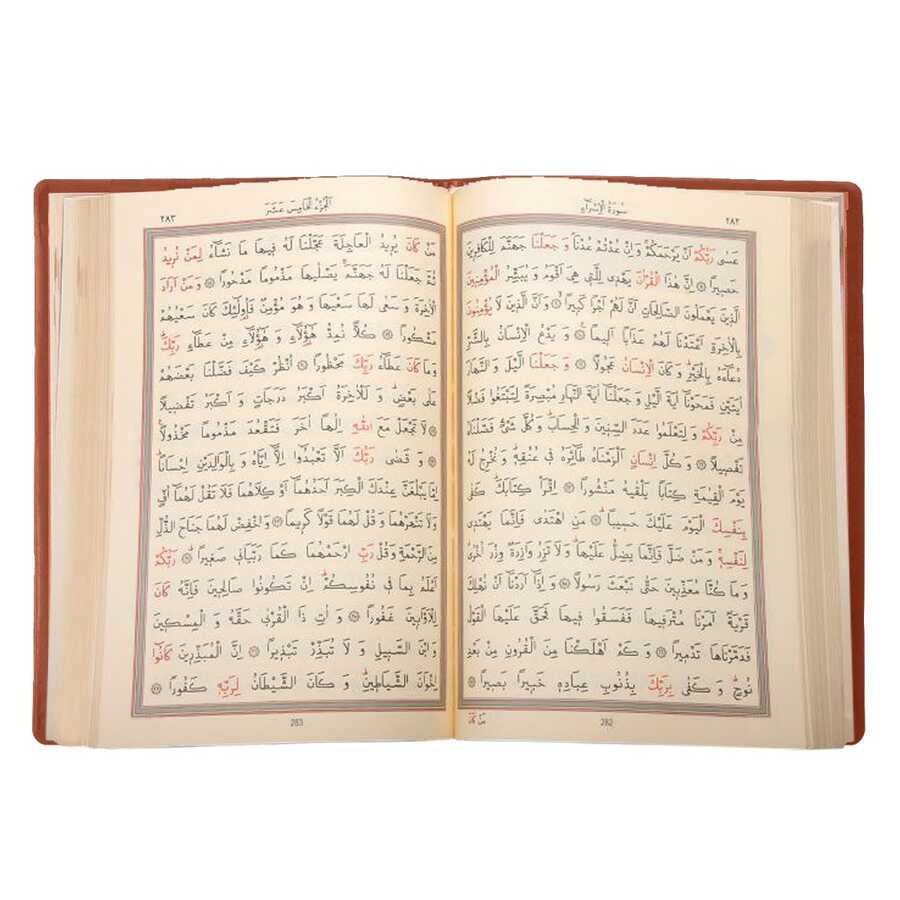 سُورَةُ الْاِسْرَاءِ ٢٨٢
عَسٰى رَبُّكُمْ اَنْ يَرْحَمَكُمْ وَاِنْ عُدْتُمْ عُدْنَا وَ جَعَلْنَا جَهَنَّمَ لِلْكَافِرٖينَ
حَصٖيرًا ۝٨ اِنَّ هٰذَا الْقُرْاٰنَ يَهْدٖى لِلَّتٖى هِىَ اَقْوَمُ وَ يُبَشِّرُ الْمُؤْمِنٖينَ
الَّذٖينَ يَعْمَلُونَ الصَّالِحَاتِ اَنَّ لَهُمْ اَجْرًا كَبٖيرًا ۝٩ وَ اَنَّ الَّذٖينَ لَا يُؤْمِنُونَ
بِالْاٰخِرَةِ اَعْتَدْنَا لَهُمْ عَذَابًا اَلٖيمًا ۝١٠ وَ يَدْعُ الْاِنْسَانُ بِالشَّرِّ
دُعَٓاءَهُ بِالْخَيْرِ وَ كَانَ الْاِنْسَانُ عَجُولًا ۝١١ وَ جَعَلْنَا الَّيْلَ وَ النَّهَارَ
اٰيَتَيْنِ فَمَحَوْنَٓا اٰيَةَ الَّيْلِ وَ جَعَلْنَٓا اٰيَةَ النَّهَارِ مُبْصِرَةً لِتَبْتَغُوا فَضْلًا
مِنْ رَبِّكُمْ وَ لِتَعْلَمُوا عَدَدَ السِّنٖينَ وَ الْحِسَابَ وَ كُلَّ شَىْءٍ فَصَّلْنَاهُ
تَفْصٖيلًا ۝١٢ وَ كُلَّ اِنْسَانٍ اَلْزَمْنَاهُ طَٓائِرَهُ فٖى عُنُقِهٖ وَ نُخْرِجُ لَهُ
يَوْمَ الْقِيٰمَةِ كِتَابًا يَلْقٰيهُ مَنْشُورًا ۝١٣ اِقْرَأْ كِتَابَكَ كَفٰى
بِنَفْسِكَ الْيَوْمَ عَلَيْكَ حَسٖيبًا ۝١٤ مَنِ اهْتَدٰى فَاِنَّمَا يَهْتَدٖى
لِنَفْسِهٖ وَ مَنْ ضَلَّ فَاِنَّمَا يَضِلُّ عَلَيْهَا وَ لَا تَزِرُ وَازِرَةٌ وِزْرَ اُخْرٰى
وَ مَا كُنَّا مُعَذِّبٖينَ حَتّٰى نَبْعَثَ رَسُولًا ۝١٥ وَ اِذَٓا اَرَدْنَٓا اَنْ نُهْلِكَ
قَرْيَةً اَمَرْنَا مُتْرَفٖيهَا فَفَسَقُوا فٖيهَا فَحَقَّ عَلَيْهَا الْقَوْلُ
فَدَمَّرْنَاهَا تَدْمٖيرًا ۝١٦ وَ كَمْ اَهْلَكْنَا مِنَ الْقُرُونِ مِنْ بَعْدِ
نُوحٍ وَ كَفٰى بِرَبِّكَ بِذُنُوبِ عِبَادِهٖ خَبٖيرًا بَصٖيرًا ۝١٧
مَنْ كَانَ
282
اَلْجُزْءُ الْخَامِسَ عَشَرَ ٢٨٣
مَنْ كَانَ يُرٖيدُ الْعَاجِلَةَ عَجَّلْنَا لَهُ فٖيهَا مَا نَشَٓاءُ لِمَنْ نُرٖيدُ
ثُمَّ جَعَلْنَا لَهُ جَهَنَّمَ يَصْلٰيهَا مَذْمُومًا مَدْحُورًا ۝١٨ وَ مَنْ اَرَادَ
الْاٰخِرَةَ وَ سَعٰى لَهَا سَعْيَهَا وَ هُوَ مُؤْمِنٌ فَاُولٰٓئِكَ كَانَ سَعْيُهُمْ
مَشْكُورًا ۝١٩ كُلًّا نُمِدُّ هٰٓؤُلَٓاءِ وَ هٰٓؤُلَٓاءِ مِنْ عَطَٓاءِ رَبِّكَ
وَ مَا كَانَ عَطَٓاءُ رَبِّكَ مَحْظُورًا ۝٢٠ اُنْظُرْ كَيْفَ فَضَّلْنَا بَعْضَهُمْ
عَلٰى بَعْضٍ وَ لَلْاٰخِرَةُ اَكْبَرُ دَرَجَاتٍ وَ اَكْبَرُ تَفْضٖيلًا
۝٢١ لَا تَجْعَلْ مَعَ اللّٰهِ اِلٰهًا اٰخَرَ فَتَقْعُدَ مَذْمُومًا مَخْذُولًا
۝٢٢ وَ قَضٰى رَبُّكَ اَلَّا تَعْبُدُٓوا اِلَّٓا اِيَّاهُ وَ بِالْوَالِدَيْنِ اِحْسَانًا
اِمَّا يَبْلُغَنَّ عِنْدَكَ الْكِبَرَ اَحَدُهُمَٓا اَوْ كِلَاهُمَا فَلَا تَقُلْ لَهُمَٓا اُفٍّ
وَلَا تَنْهَرْهُمَا وَ قُلْ لَهُمَا قَوْلًا كَرٖيمًا ۝٢٣ وَاخْفِضْ لَهُمَا جَنَاحَ الذُّلِّ
مِنَ الرَّحْمَةِ وَ قُلْ رَبِّ ارْحَمْهُمَا كَمَا رَبَّيَانٖى صَغٖيرًا ۝٢٤ رَبُّكُمْ
اَعْلَمُ بِمَا فٖى نُفُوسِكُمْ اِنْ تَكُونُوا صَالِحٖينَ فَاِنَّهُ كَانَ
لِلْاَوَّابٖينَ غَفُورًا ۝٢٥ وَ اٰتِ ذَا الْقُرْبٰى حَقَّهُ وَ الْمِسْكٖينَ
وَابْنَ السَّبٖيلِ وَ لَا تُبَذِّرْ تَبْذٖيرًا ۝٢٦ اِنَّ الْمُبَذِّرٖينَ كَانُٓوا
اِخْوَانَ الشَّيَاطٖينِ وَ كَانَ الشَّيْطَانُ لِرَبِّهٖ كَفُورًا ۝٢٧
283